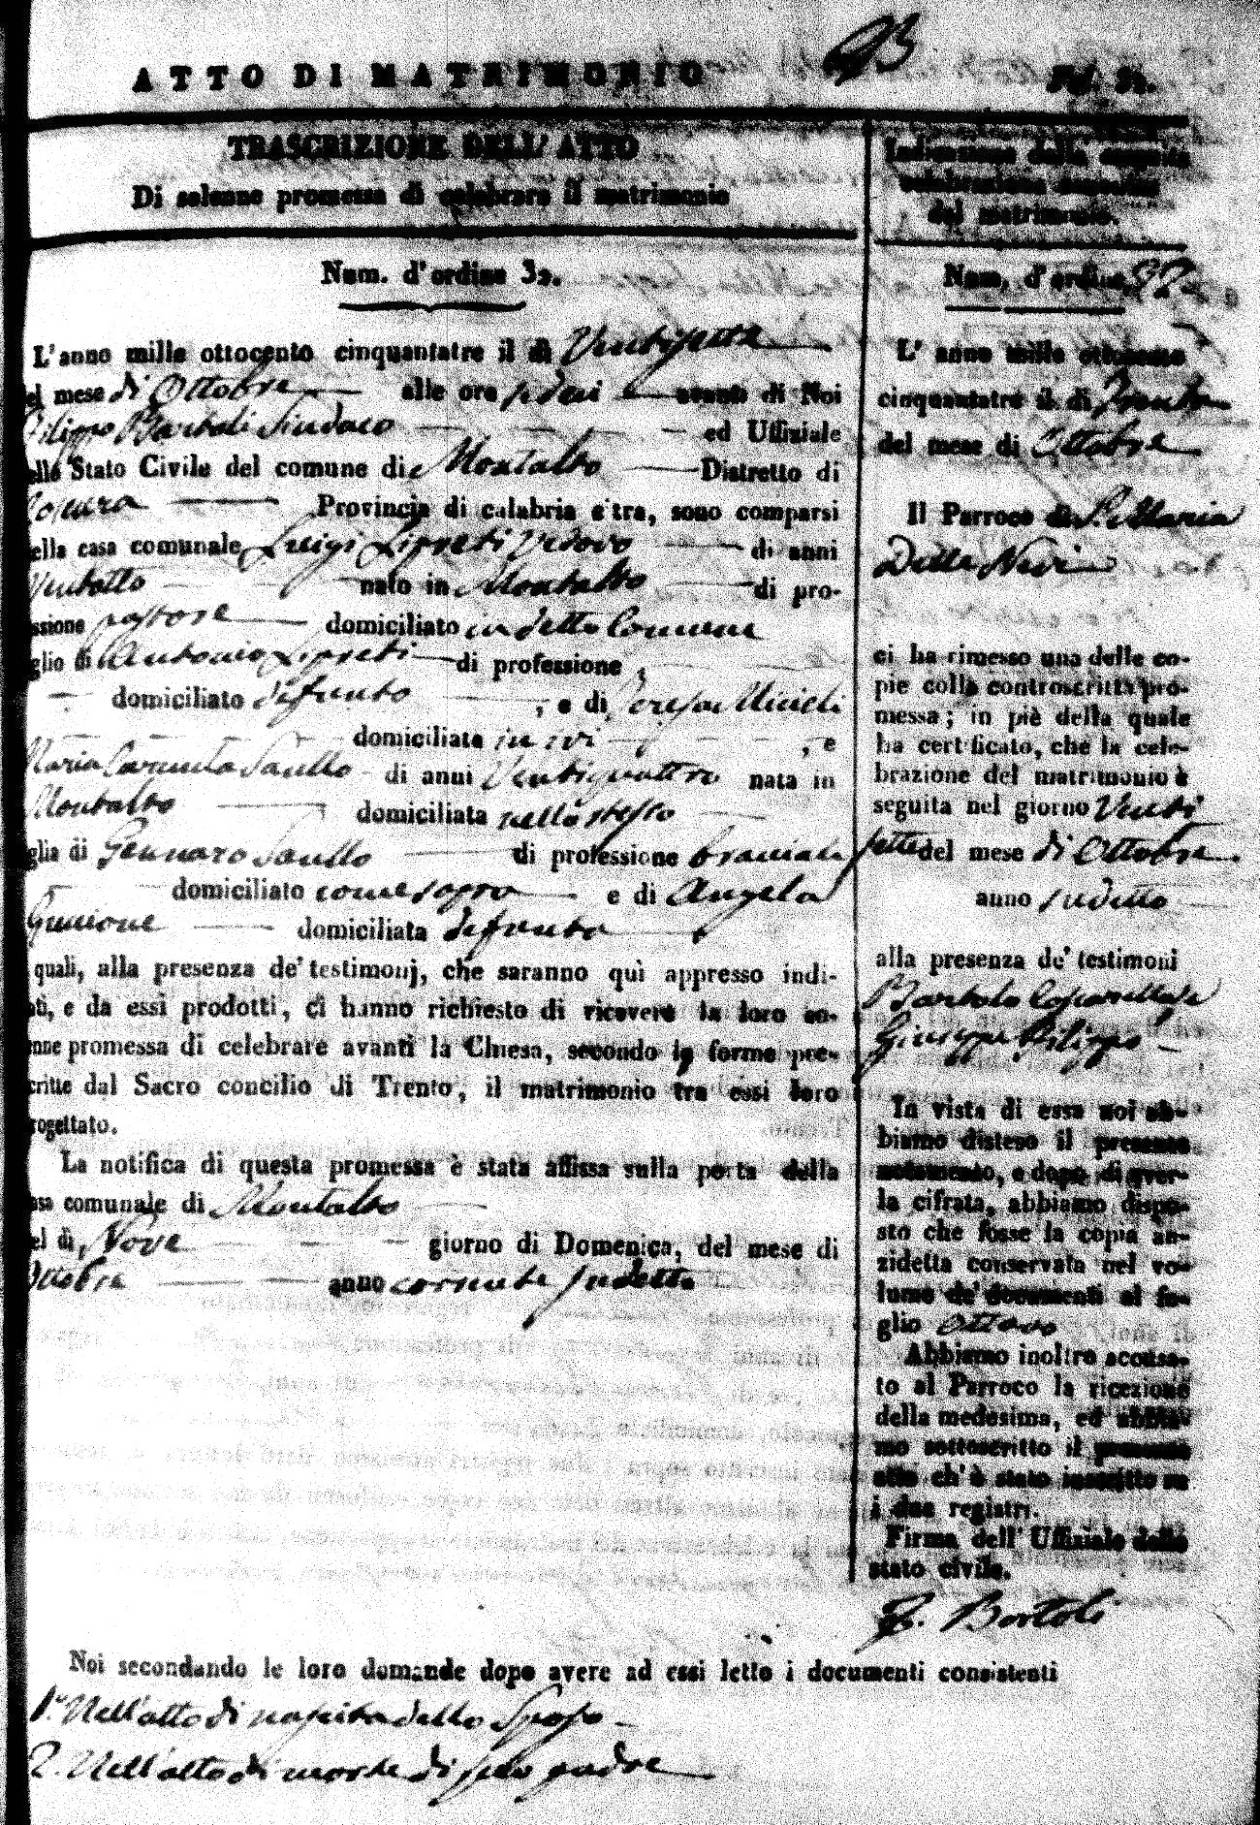 93
ATTO DI MATRIMONIO
Fol. 32.
TRASCRIZIONE DELL' ATTO
Di solenne promessa di celebrare il matrimonio
Num. d'ordine 32.
L'anno mille ottocento cinquantatre il dì Ventisette
el mese di Ottobre alle ore sedici avanti di Noi
Filippo Bartoli Sindaco ed Uffiziale
ello Stato Civile del comune di Montalto Distretto di
Cosenza Provincia di calabria citra, sono comparsi
ella casa comunale Luigi Vedovo di anni
Ventotto nato in Montalto di pro-
ssione pastore domiciliato in detto Comune
glio di Antonio di professione
domiciliato defunto , e di Teresa Miceli
domiciliata in ivi , e
Maria Carmela Saullo di anni Ventiquattro nata in
Montalto domiciliata nello stesso
glia di Gennaro Saullo di professione bracciale
domiciliato come sopra e di Angela
domiciliata defunta
quali, alla presenza de' testimonj, che saranno quì appresso indi-
ati, e da essi prodotti, ci hanno richiesto di ricevere la loro so-
enne promessa di celebrare avanti la Chiesa, secondo le forme pre-
critte dal Sacro concilio di Trento, il matrimonio tra essi loro
rogettato.
La notifica di questa promessa è stata affissa sulla porta della
asa comunale di Montalto
el dì Nove giorno di Domenica, del mese di
Ottobre anno corrente sudetto
Indicazione della seguita
celebrazione
del matrimonio.
Num. d'ordine 32
L' anno mille ottocento
cinquantatre il dì Trenta
del mese di Ottobre
Il Parroco di S. Maria
Della Neve
ci ha rimesso una delle co-
pie colla controscritta pro-
messa; in piè della quale
ha certificato, che la cele-
brazione del matrimonio è
seguita nel giorno Venti
sette del mese di Ottobre
anno sudetto
alla presenza de' testimoni
Bartolo
Giuseppe Filippo
In vista di essa noi ab-
biamo disteso il presente
notamento, e dopo di aver-
la cifrata, abbiamo dispo-
sto che fosse la copia an-
zidetta conservata nel vo-
lume de' documenti al fo-
glio ottavo
Abbiamo inoltre accusa-
to al Parroco la ricezione
della medesima, ed abbia-
mo sottoscritto il presente
atto ch' è stato inscritto su
i due registri.
Firma dell' Uffiziale dello
stato civile.
F. Bartoli
Noi secondando le loro domande dopo avere ad essi letto i documenti consistenti
1.° Nell'atto di nascita dello Sposo
2. Nell'atto di morte di suo padre